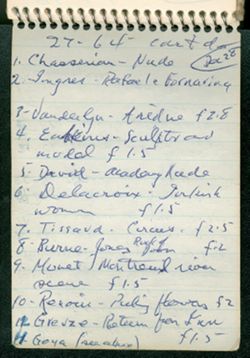 27-64 cont'd
Dec 28
1. Chasserian - Nude
2. Ingres - Rafaele Fornarina
3- Vanderlyn - Ariadne f 2.8
4. Eakins - Sculptor and
model f 1.5
5. David - Academy Nude
6 Delacroix - Turkish
women f 1.5
7. Tissaud - Circus - f 2.5
8. Burne-Jones f.2
9. Monet Montreaul river
scene f 1.5
10- Renoir - Picking flowers f2
11. Greuze - Return from
11. Goya